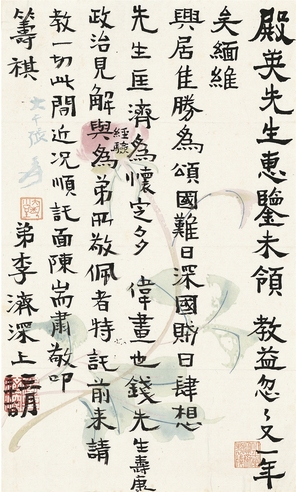 殿英先生惠鑒未領　教益忽〻又一年
矣緬維
興居佳勝為頌國難日深國賊日肆想
先生匡濟為懷定多　偉畫也錢先生壽康
政治見解與經驗為弟所敬佩者特託前來請
教一切此間近况順託面陳耑肅敬叩
籌祺
弟李濟深上 三月
大千張爰